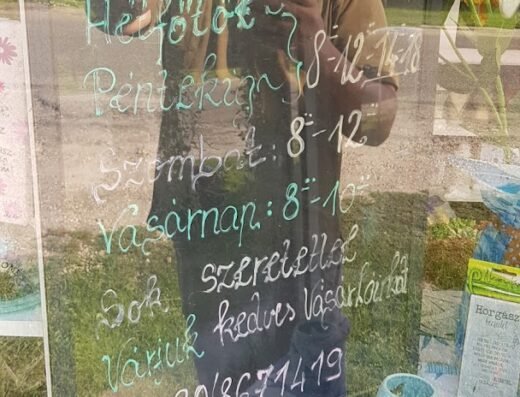 Hétfőtől
Péntekig 8=-12= 14-18
Szombat: 8=-12=
Vasárnap: 8=-10=
Sok szeretettel
Várjuk kedves Vásárlóinkat
8671419
Horgász